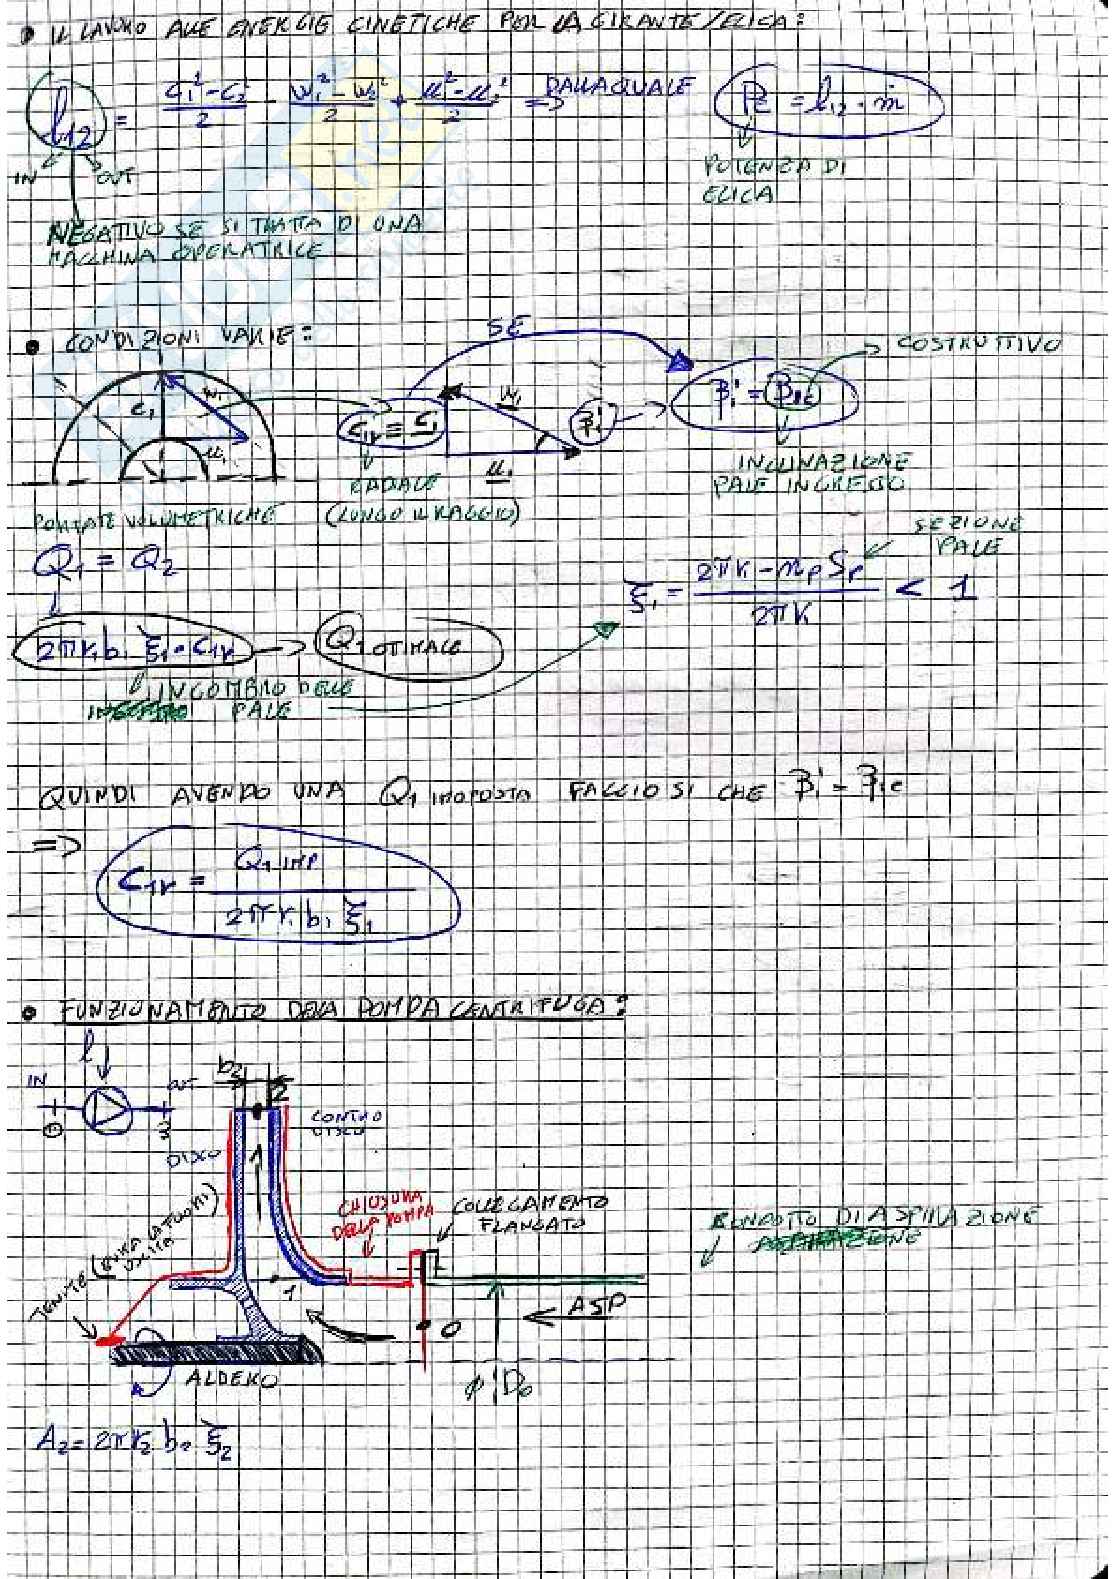 • IL LAVORO ALLE ENERGIE CINETICHE PER LA GIRANTE/ELICA:
l₁₂ = (c₁² - c₂²)/2 - (w₁² - w₂²)/2 + (u₁² - u₂²)/2 => DALLA QUALE Pₑ = l₁₂ · ṁ
IN OUT
POTENZA DI
ELICA
NEGATIVO SE SI TRATTA DI UNA
MACCHINA OPERATRICE
• CONDIZIONI VARIE:
SE
COSTRUTTIVO
c₁ w₁ u₁
c₁ᵣ ≡ c₁ w₁ u₁ β₁' β₁' = β₁c
RADIALE
(LUNGO IL RAGGIO)
INCLINAZIONE
PALE INGRESSO
PORTATE VOLUMETRICHE
Q₁ = Q₂
SEZIONE
PALE
ξ₁ = (2πr₁ - nₚSₚ)/(2πr₁) < 1
2πr₁b₁ ξ₁ · c₁ᵣ -> Q₁ OTTIMALE
INGOMBRO DELLE
PALE
QUINDI AVENDO UNA Q₁ IMPOSTA FACCIO SI CHE β₁' = β₁c
=> c₁ᵣ = Q₁ IMP / (2πr₁ b₁ ξ₁)
• FUNZIONAMENTO DELLA POMPA CENTRIFUGA:
l
IN OUT
0 3
b₂ 2
CONTRO
DISCO
DISCO
CHIUSURA
DELLA POMPA
COLLEGAMENTO
FLANGIATO
CONDOTTO DI ASPIRAZIONE
TENUTE
1
0
ASP
ALBERO
φ D₀
A₂ = 2πr₂ b₂ ξ₂